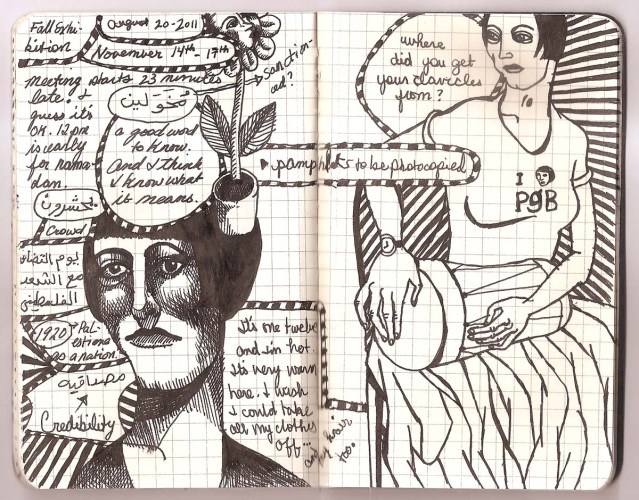 Fall Exhi-
bition
August 20-2011
November 14th - 17th
meeting starts 23 minutes
late. I
guess it's
OK. 12pm
is early
for Rama-
dan.
sanction-
ed?
مُخَوَّلين
a good word
to know.
And I think
I know what
it means.
يحشرون
Crowd
يوم التضامن
مع الشعب
الفلسطيني
1920
Pal-
estine
as a nation.
مصداقية
Credibility
It's one twelve
and I'm hot.
It's very warm
here. I wish
I could take
all my clothes
off...
and hair
too.
pamphlets to be photocopied
where
did you get
your clavicles
from?
10
I
PGB